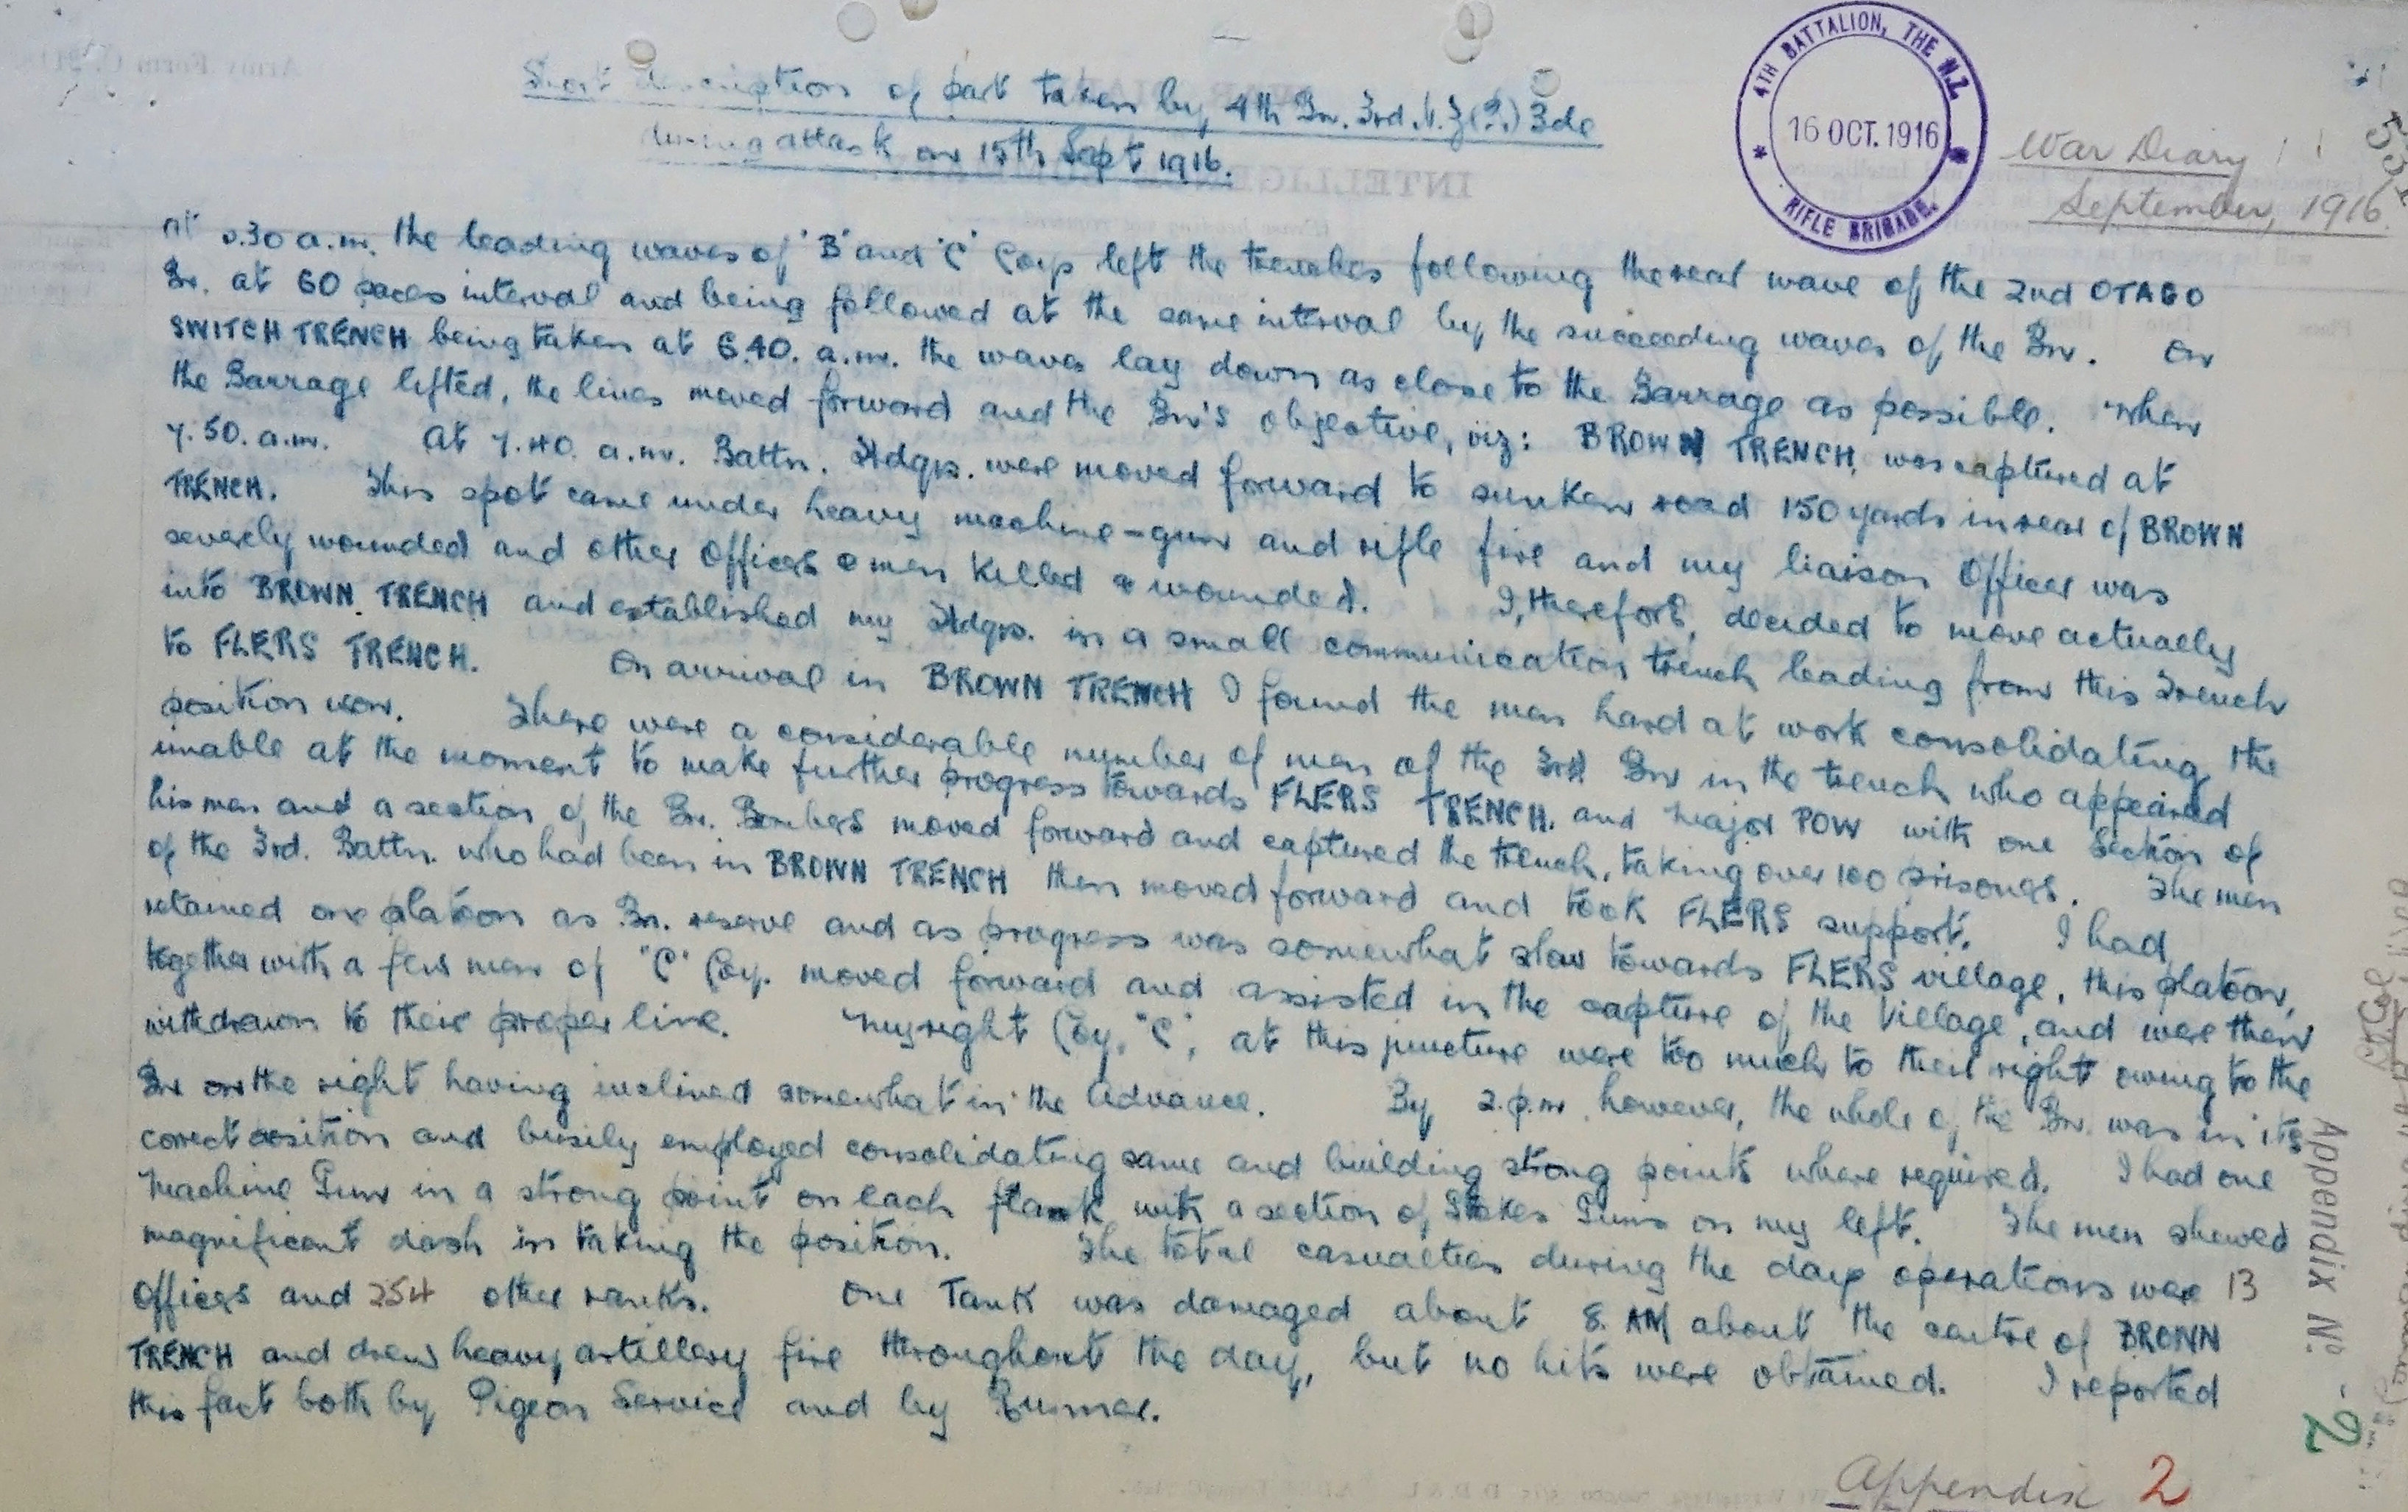 Short description of part taken by 4th Bn. 3rd. N.Z.(R.) Bde
during attack on 15th Sept 1916.
4TH BATTALION, THE N.Z. RIFLE BRIGADE.
16 OCT. 1916
War Diary
September, 1916.
At .30 a.m. the leading waves of 'B' and 'C' Coys left the trenches following the rear wave of the 2nd OTAGO
Bn. at 60 paces interval and being followed at the same interval by the succeeding waves of the Bn. On
SWITCH TRENCH being taken at 6.40. a.m. the waves lay down as close to the Barrage as possible. When
the Barrage lifted, the lines moved forward and the Bn's objective, viz: BROWN TRENCH, was captured at
7.50. a.m. At 7.40. a.m. Battn. Hdqrs. were moved forward to sunken road 150 yards in rear of BROWN
TRENCH. This spot came under heavy machine-gun and rifle fire and my liaison Officer was
severely wounded and other Officers & men killed & wounded. I, therefore, decided to move actually
into BROWN TRENCH and established my Hdqrs. in a small communication trench leading from this Trench
to FLERS TRENCH. On arrival in BROWN TRENCH I found the men hard at work consolidating the
position won. There were a considerable number of men of the 3rd Bn in the trench who appeared
unable at the moment to make further progress towards FLERS TRENCH. and Major POW with one Section of
his men and a section of the Bn. Bombers moved forward and captured the trench, taking over 100 prisoners. The men
of the 3rd. Battn. who had been in BROWN TRENCH then moved forward and took FLERS support. I had
retained one platoon as Bn. reserve and as progress was somewhat slow towards FLERS village, this platoon,
together with a few men of 'C' Coy. moved forward and assisted in the capture of the Village, and were then
withdrawn to their proper line. My right Coy. 'C', at this juncture were too much to their right owing to the
Bn on the right having inclined somewhat in the Advance. By 2. p.m. however, the whole of the Bn. was in its
correct position and busily employed consolidating same and building strong points where required. I had one
Machine Gun in a strong point on each flank with a section of Stokes Guns on my left. The men shewed
magnificent dash in taking the position. The total casualties during the days operations were 13
Officers and 254 other ranks. One Tank was damaged about 8. AM about the centre of BROWN
TRENCH and drew heavy artillery fire throughout the day, but no hits were obtained. I reported
this fact both by Pigeon Service and by Runner.
Appendix 2
Appendix No. - 2